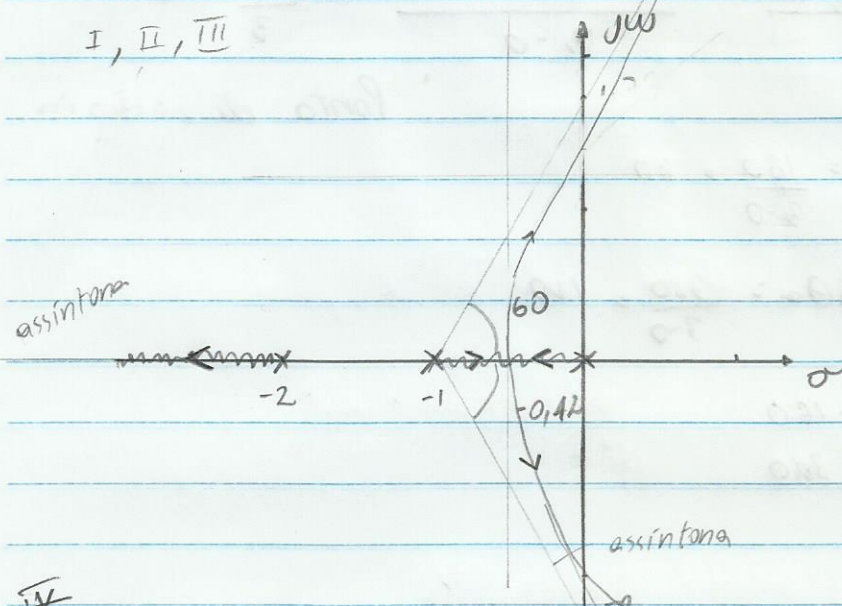 I, II, III
jω
assíntona
60
-2
-1
-0,42
σ
assíntona
IV